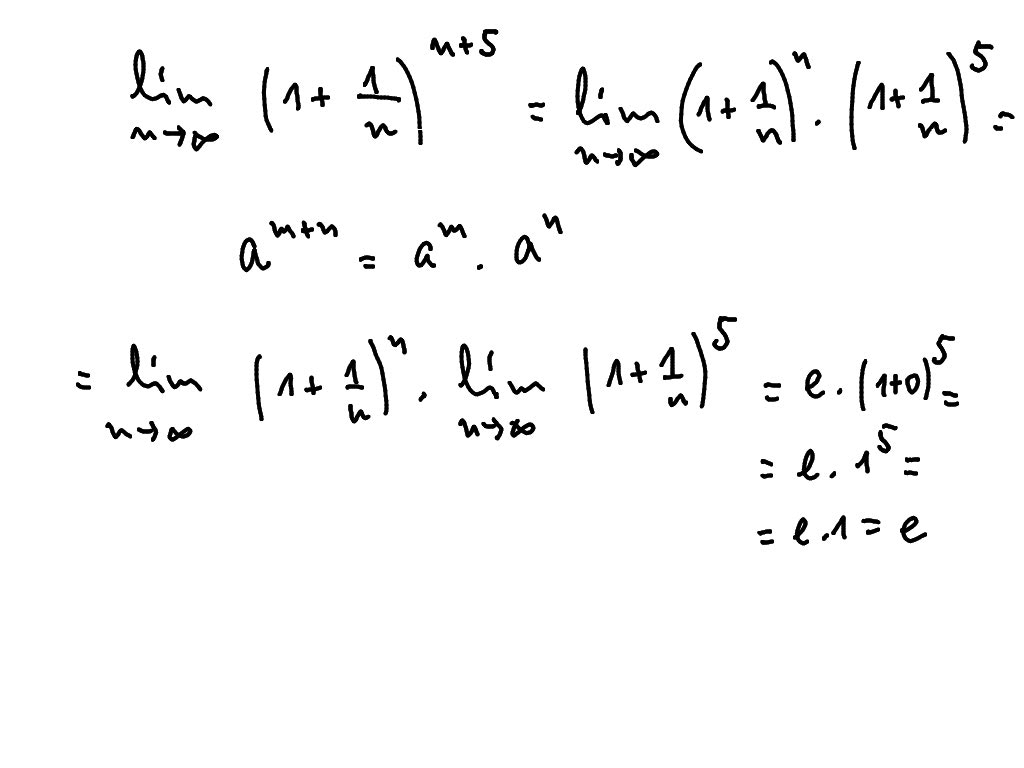 lim n→∞ (1 + 1/n)^(n+5) = lim n→∞ (1 + 1/n)^n · (1 + 1/n)^5 =
a^(m+n) = a^m · a^n
= lim n→∞ (1 + 1/n)^n · lim n→∞ (1 + 1/n)^5 = e · (1+0)^5 =
= e · 1^5 =
= e · 1 = e